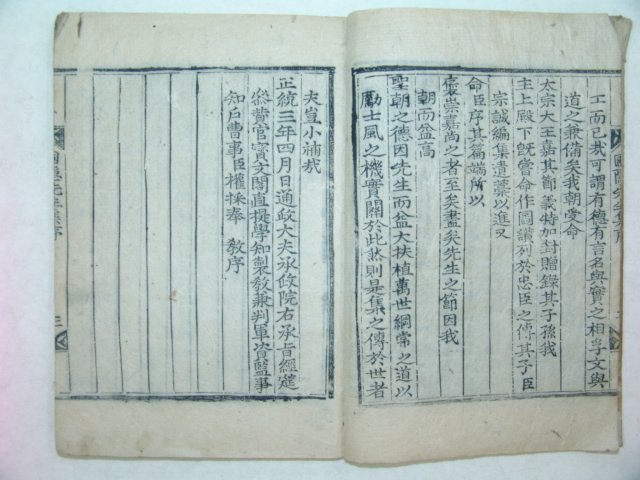 工而已哉可謂有德有言名與實之相孚文與
道之兼備矣我朝受命
太宗大王嘉其節義特加封贈錄其子孫我
主上殿下旣嘗命作圖讚列於忠臣之傳其子臣
宗誠編集遺藁以進又
命臣序其篇端所以
褒崇嘉尚之者至矣盡矣先生之節因我
朝而益高
聖朝之德因先生而益大扶植萬世綱常之道以
勵士風之機實關於此然則是集之傳於世者
夫豈小補哉
正統三年四月日通政大夫承政院右承旨經筵
叅贊官寶文閣直提學知製敎兼判軍資監事
知戶曹事臣權採奉 敎序
圃隱先生集序